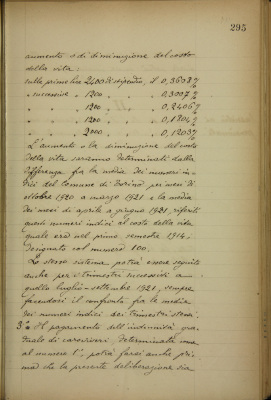 295
aumento o di diminuzione del costo
della vita:
sulle prime lire 2400 di stipendio, il 0,3608%
" successive " 1200 " " 0,3007%
" " 1200 " " 0,2406%
" " 1200 " " 0,1804%
" " 2000 " " 0,1203%
L'aumento e la diminuzione del costo
della vita saranno determinati dalla
differenza fra la media dei numeri in-
dici del Comune di Torino pei mesi di
ottobre 1920 a marzo 1921 e la media
dei mesi di aprile a giugno 1921, riferiti
questi numeri indici al costo della vita
quale era nel primo semestre 1914,
designato col numero 100.
Lo stesso sistema potrà essere seguito
anche per i trimestri successivi a
quello luglio-settembre 1921, sempre
facendosi il confronto fra la media
dei numeri indici dei trimestri stessi.
3° Il pagamento dell'indennità gra-
duale di caroviveri, determinata come
al numero 1°, potrà farsi anche pri-
ma che la presente deliberazione sia